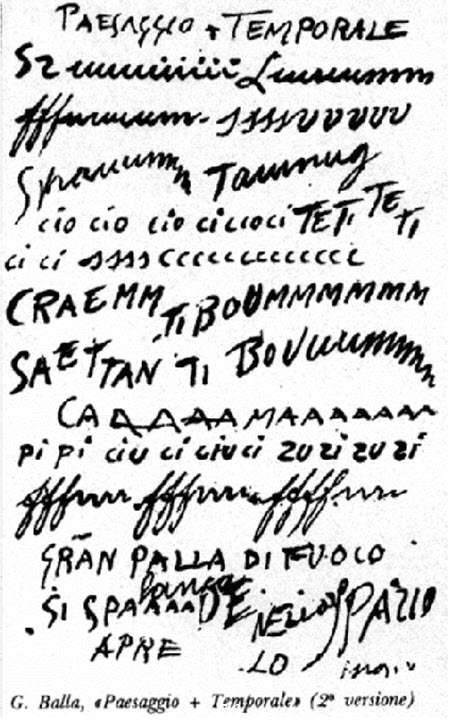 PAESAGGIO + TEMPORALE
SZ uuuuiiiiii Luuuuummm
fffuuuuuum- ssssUVVVV
Spraauummn Taumnug
cio cio cio ci cioci TETI TETI
ci ci ssssccccccccccccc
CRAEMM TI BOUMMMMMMM
SAETTAN TI BOVuuummmmn
CAAAAAMAAAAAAA
pi pi ciu ci ciuci zuzizuzi
fffurrr fffurrr fffurrr
GRAN PALLA DI FUOCO
SI SPAAAA DE SPAZIO
APRE LO
G. Balla, «Paesaggio + Temporale» (2ª versione)